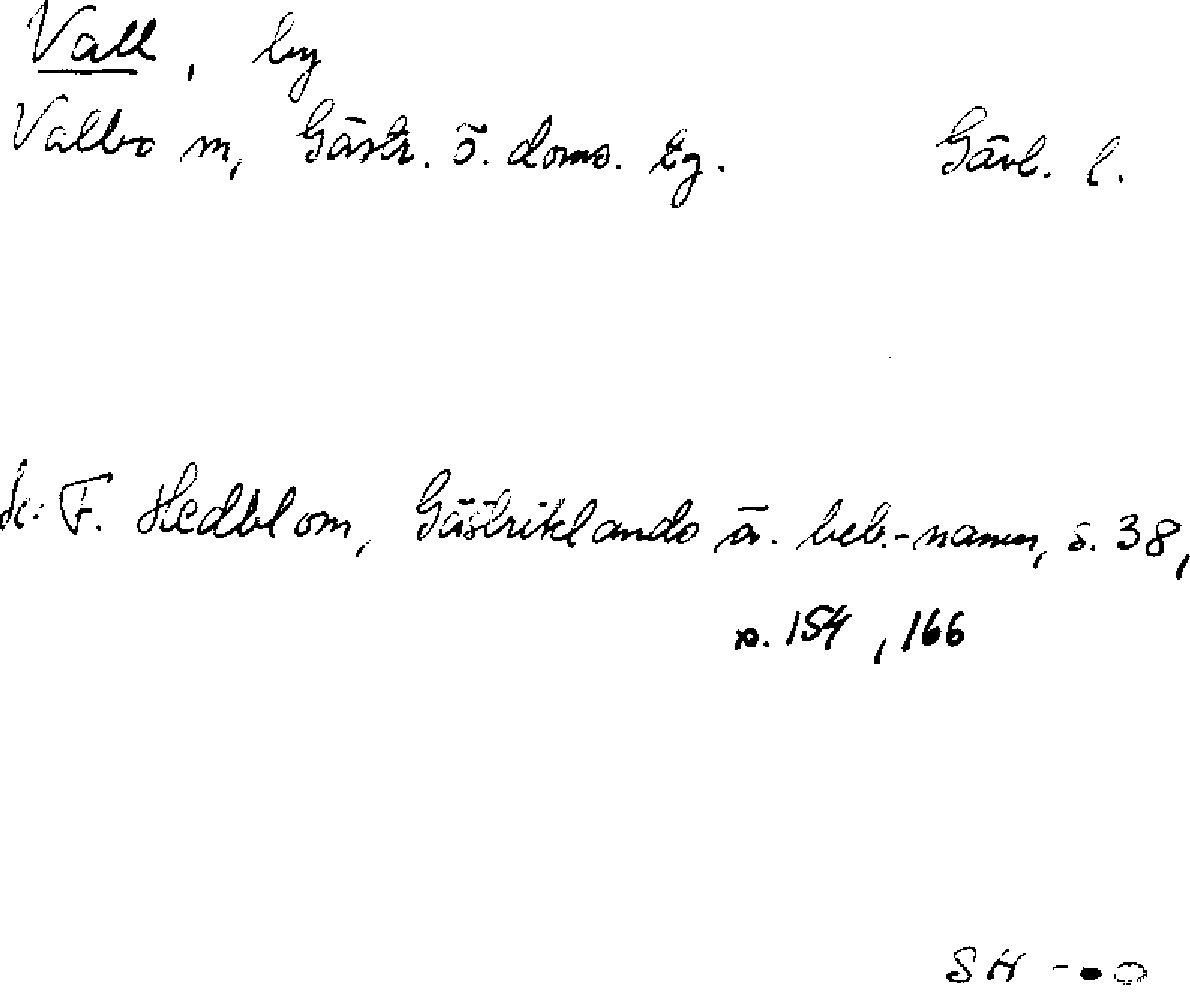 Vall, by
Valbo sn, Gästr. ö. doms. tg. Gävl. l.
F. Hedblom, Gästriklands ä. beb.-namn, s. 38,
s. 154, 166
SH